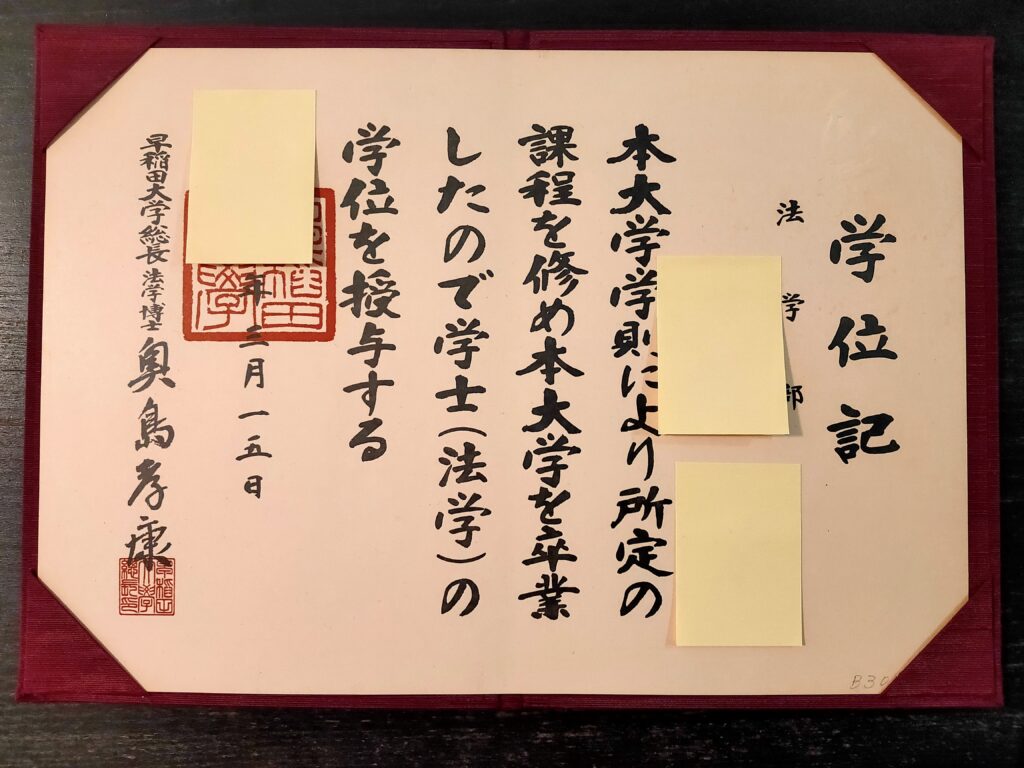 学位記
法学部
本大学学則により所定の
課程を修め本大学を卒業
したので学士(法学)の
学位を授与する
年三月一五日
早稲田大学総長 法学博士 奥島孝康
早稲田大学総長印
B30